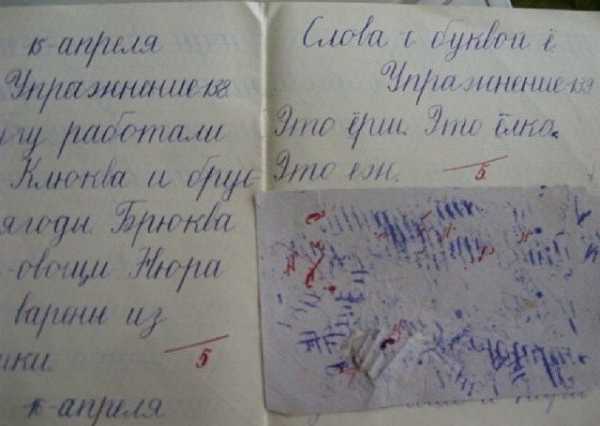 15-апреля
Упражнение 158
гу работали
Клюква и брус
ягоды. Брюква
-овощи. Нюра
варени из
ики.
5
15-апреля
Слова с буквой ё
Упражнение 159
Это ёрш. Это ёлка.
Это еж.
5